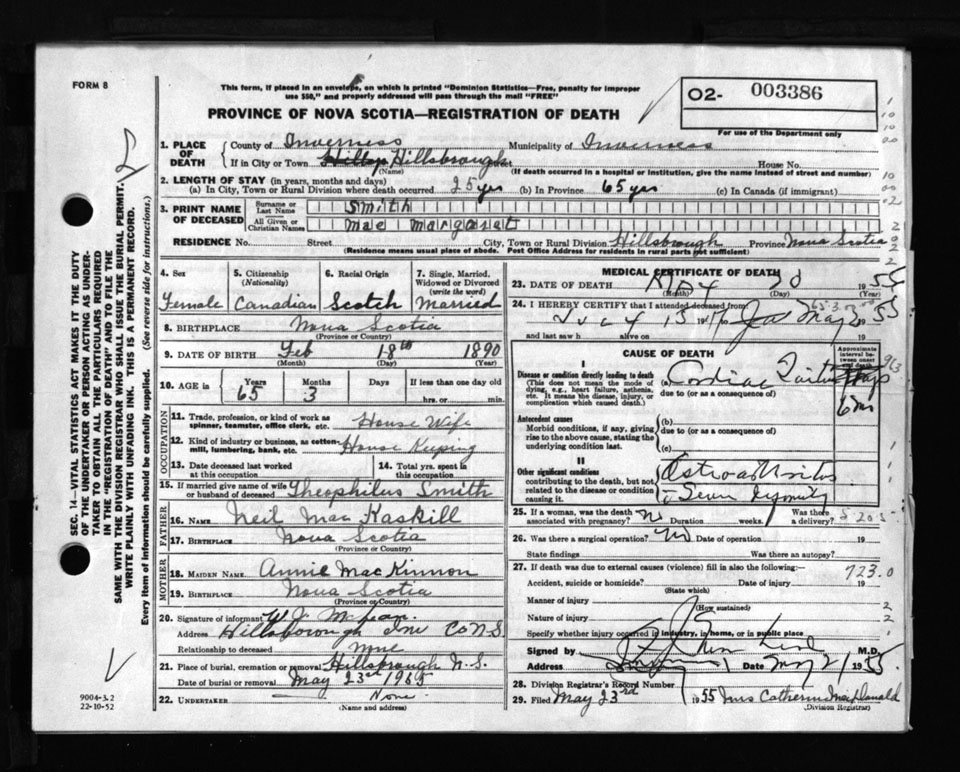 FORM 8
This form, if placed in an envelope, on which is printed "Dominion Statistics—Free, penalty for improper
use $50," and properly addressed will pass through the mail "FREE"
PROVINCE OF NOVA SCOTIA—REGISTRATION OF DEATH
O2- 003386
For use of the Department only
SEC. 14—VITAL STATISTICS ACT MAKES IT THE DUTY
OF THE UNDERTAKER OR PERSON ACTING AS UNDER-
TAKER TO OBTAIN ALL THE PARTICULARS REQUIRED
IN THE "REGISTRATION OF DEATH" AND TO FILE THE
SAME WITH THE DIVISION REGISTRAR WHO SHALL ISSUE THE BURIAL PERMIT.
WRITE PLAINLY WITH UNFADING INK. THIS IS A PERMANENT RECORD.
Every item of information should be carefully supplied. (See reverse side for instructions.)
9004-3.2
22-10-52
1. PLACE OF DEATH
County of Inverness Municipality of Inverness
If in City or Town Hillsbrough Street House No.
(Name) (If death occurred in a hospital or institution, give the name instead of street and number)
2. LENGTH OF STAY (in years, months and days)
(a) In City, Town or Rural Division where death occurred 25 yrs (b) in Province 65 yrs (c) in Canada (if immigrant)
3. PRINT NAME OF DECEASED
Surname or Last Name Smith
All Given or Christian Names Mae Margarat
RESIDENCE No. Street City, Town or Rural Division Hillsbrough Province Nova Scotia
(Residence means usual place of abode. Post Office Address for residents in rural parts not sufficient)
4. Sex Female
5. Citizenship (Nationality) Canadian
6. Racial Origin Scotch
7. Single, Married, Widowed or Divorced (write the word) Married
8. BIRTHPLACE Nova Scotia
(Province or Country)
9. DATE OF BIRTH Feb 18th 1890
(Month) (Day) (Year)
10. AGE in Years 65 Months 3 Days If less than one day old hrs. or min.
OCCUPATION
11. Trade, profession, or kind of work as spinner, teamster, office clerk, etc. House Wife
12. Kind of industry or business, as cotten-mill, lumbering, bank, etc. House Keeping
13. Date deceased last worked at this occupation
14. Total yrs. spent in this occupation
15. If married give name of wife or husband of deceased Theophilus Smith
FATHER
16. NAME Neil Mac Kaskill
17. BIRTHPLACE Nova Scotia
(Province or Country)
MOTHER
18. MAIDEN NAME Annie MacKinnon
19. BIRTHPLACE Nova Scotia
(Province or Country)
20. Signature of informant W. J. McLean
Address Hillsborough Inv Co N.S.
Relationship to deceased None
21. Place of burial, cremation or removal Hillsbrough N.S.
Date of burial or removal May 23rd 1955
22. UNDERTAKER None
(Name and address)
MEDICAL CERTIFICATE OF DEATH
23. DATE OF DEATH May 20 1955
(Month) (Day) (Year)
24. I HEREBY CERTIFY that I attended deceased from
May 1955
and last saw h alive on 19
CAUSE OF DEATH
Approximate interval between onset and death
I
Disease or condition directly leading to death
(This does not mean the mode of dying, e.g., heart failure, asthenia, etc. It means the disease, injury, or complication which caused death.)
(a) Cardiac Failure
due to (or as a consequence of)
Antecedent causes
Morbid conditions, if any, giving rise to the above cause, stating the underlying condition last.
(b)
due to (or as a consequence of)
(c)
II
Other significant conditions contributing to the death, but not related to the disease or condition causing it.
25. If a woman, was the death associated with pregnancy? No Duration weeks Was there a delivery?
26. Was there a surgical operation? No Date of operation 19
State findings Was there an autopsy?
27. If death was due to external causes (violence) fill in also the following:
723.0
Accident, suicide or homicide? Date of injury 19
(State which)
Manner of injury
(How sustained)
Nature of injury
Specify whether injury occurred in industry, in home, or in public place
Signed by M.D.
Address Date May 21 1955
28. Division Registrar's Record Number
29. Filed May 23rd 1955 Mrs Catherine MacDonald
(Division Registrar)